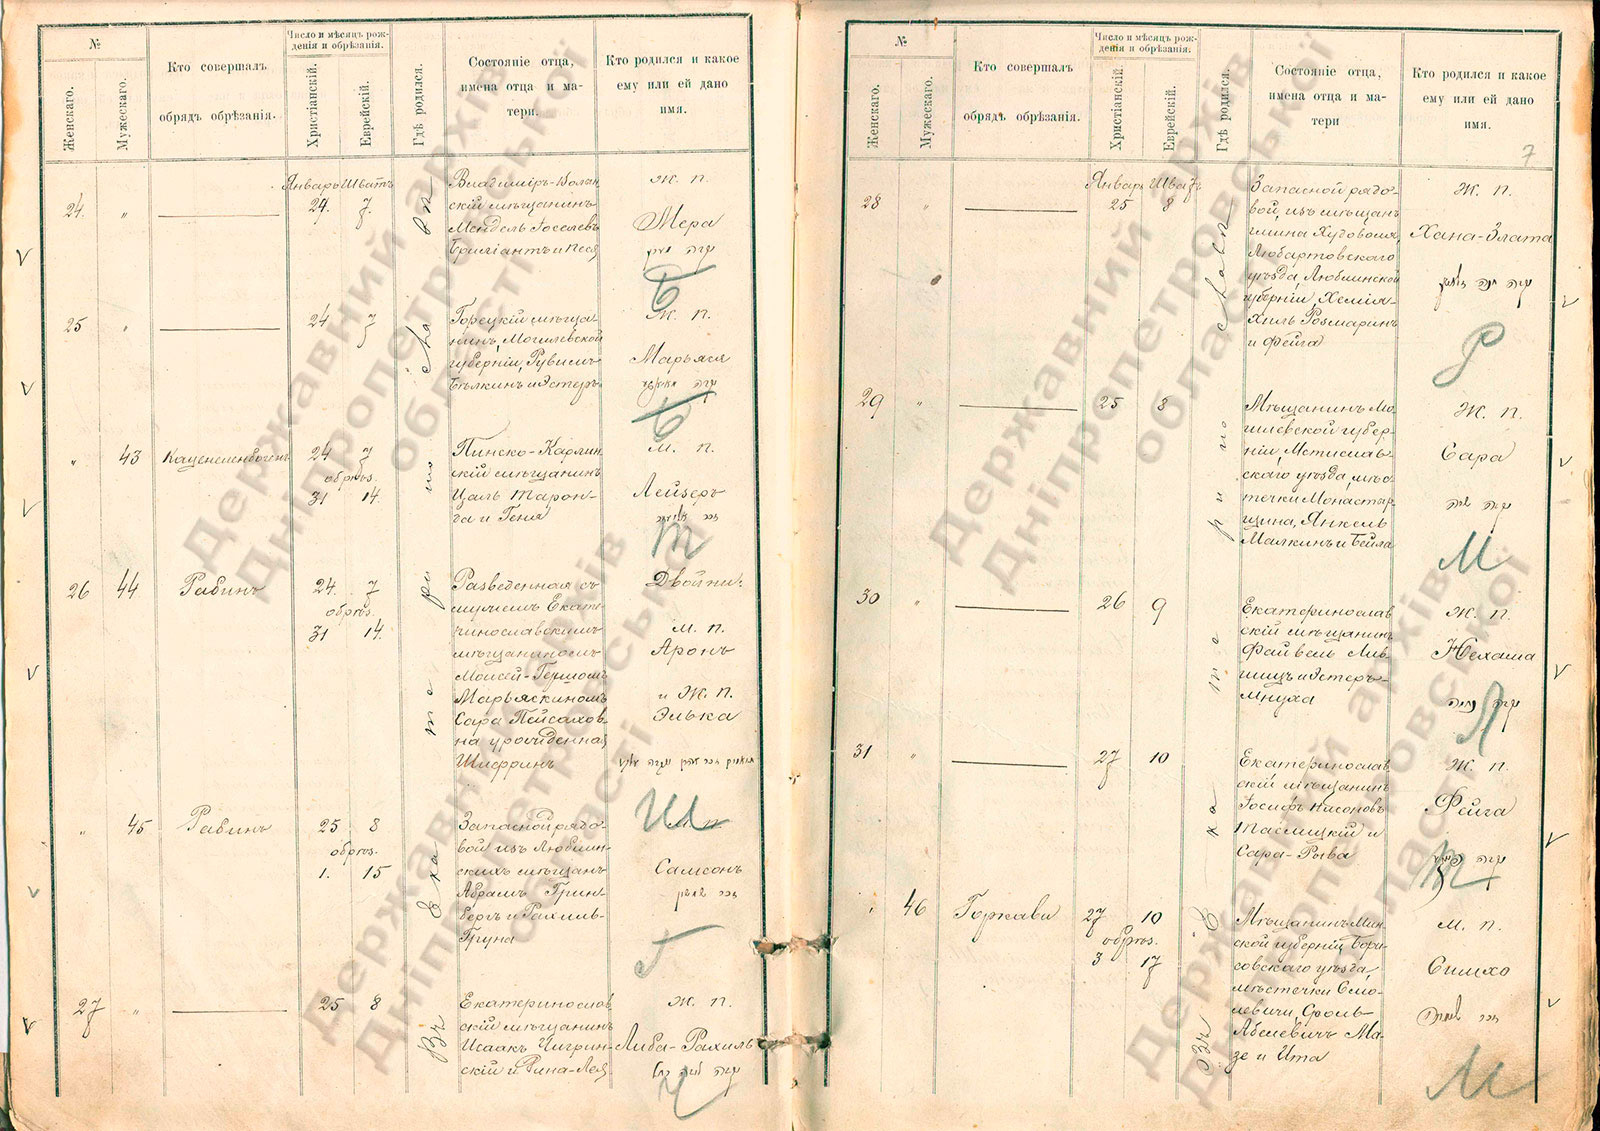 №
Женскаго.
Мужескаго.
Кто совершалъ
обрядъ обрѣзанія.
Число и мѣсяцъ рож-
денія и обрѣзанія.
Христіанскій.
Еврейскій.
Гдѣ родился.
Состояніе отца,
имена отца и ма-
тери.
Кто родился и какое
ему или ей дано
имя.
Въ Екатеринославѣ
24. "
Январь Шватъ
24. 7.
Владиміръ-Волын
скій мѣщанинъ
Мендель Іоселевъ
Бриліантъ и Песя
Ж. п.
Мера
Б
25 "
24 7
Горецкій мѣща-
нинъ, Могилевской
губерніи, Рувимъ
Бѣлкинъ и Эстеръ
Ж. п.
Марьяся
Б
" 43
Каценеленбогенъ
24 7
обрѣз.
31 14.
Пинско-Карлин
скій мѣщанинъ
Цаль Тарон-
га и Геня
м. п.
Лейзеръ
Т
26 44
Рабинъ
24. 7
обрѣз.
31 14.
Разведенная съ
мужемъ Екате-
ринославскимъ
мѣщаниномъ
Моисей-Гершомъ
Марьяскиномъ
Сара Пейсахов-
на урожденная
Шифринъ
Двойни:
м. п.
Аронъ
и Ж. п.
Элька
Ш
" 45
Рабинъ
25 8
обрѣз.
1. 15
Запасной рядо-
вой изъ Люблин-
скихъ мѣщанъ
Абрамъ Грин-
бергъ и Рахиль-
Груна
м. п.
Самсонъ
Г
27 "
25 8
Екатеринослав
скій мѣщанинъ
Исаакъ Чигрин-
скій и Рина-Лея
Ж. п.
Либа-Рахиль
Ч
№
Женскаго.
Мужескаго.
Кто совершалъ
обрядъ обрѣзанія.
Число и мѣсяцъ рож-
денія и обрѣзанія.
Христіанскій.
Еврейскій.
Гдѣ родился.
Состояніе отца,
имена отца и ма-
тери
Кто родился и какое
ему или ей дано
имя.
7
28 "
Январь Шватъ
25 8
Запасной рядо-
вой, изъ мѣщанъ
гмина Худовола,
Любартовскаго
уѣзда, Люблинской
губерніи, Хемія-
Хиль Розмаринъ
и Фейга
Ж. п.
Хана-Злата
Р
29 "
25 8
Мѣщанинъ Мо-
гилевской губер-
ніи, Мстислав-
скаго уѣзда, мѣс-
течки Монастыр-
щина, Янкель
Малкинъ и Бейла
Ж. п.
Сара
М
30 "
26 9
Екатеринослав
скій мѣщанинъ
Файвель Лив-
шицъ и Эстеръ-
Мнуха
Ж. п.
Нехама
Л
31 "
27 10
Екатеринослав
скій мѣщанинъ
Іосифъ Нисоновъ
Таслицкій и
Сара-Рыва
Ж. п.
Фейга
Т
" 46
Горкави
27 10
обрѣз.
3 17
Мѣщанинъ Мин
ской губерніи, Бори-
совскаго уѣзда,
мѣстечки Смо-
левичи, Фроль
Абелевичъ Ма-
зе и Ита
м. п.
Симхо
М
Державний архів
Дніпропетровської
області
Державний архів
Дніпропетровської
області
Державний архів
Дніпропетровської
області
Державний архів
Дніпропетровської
області